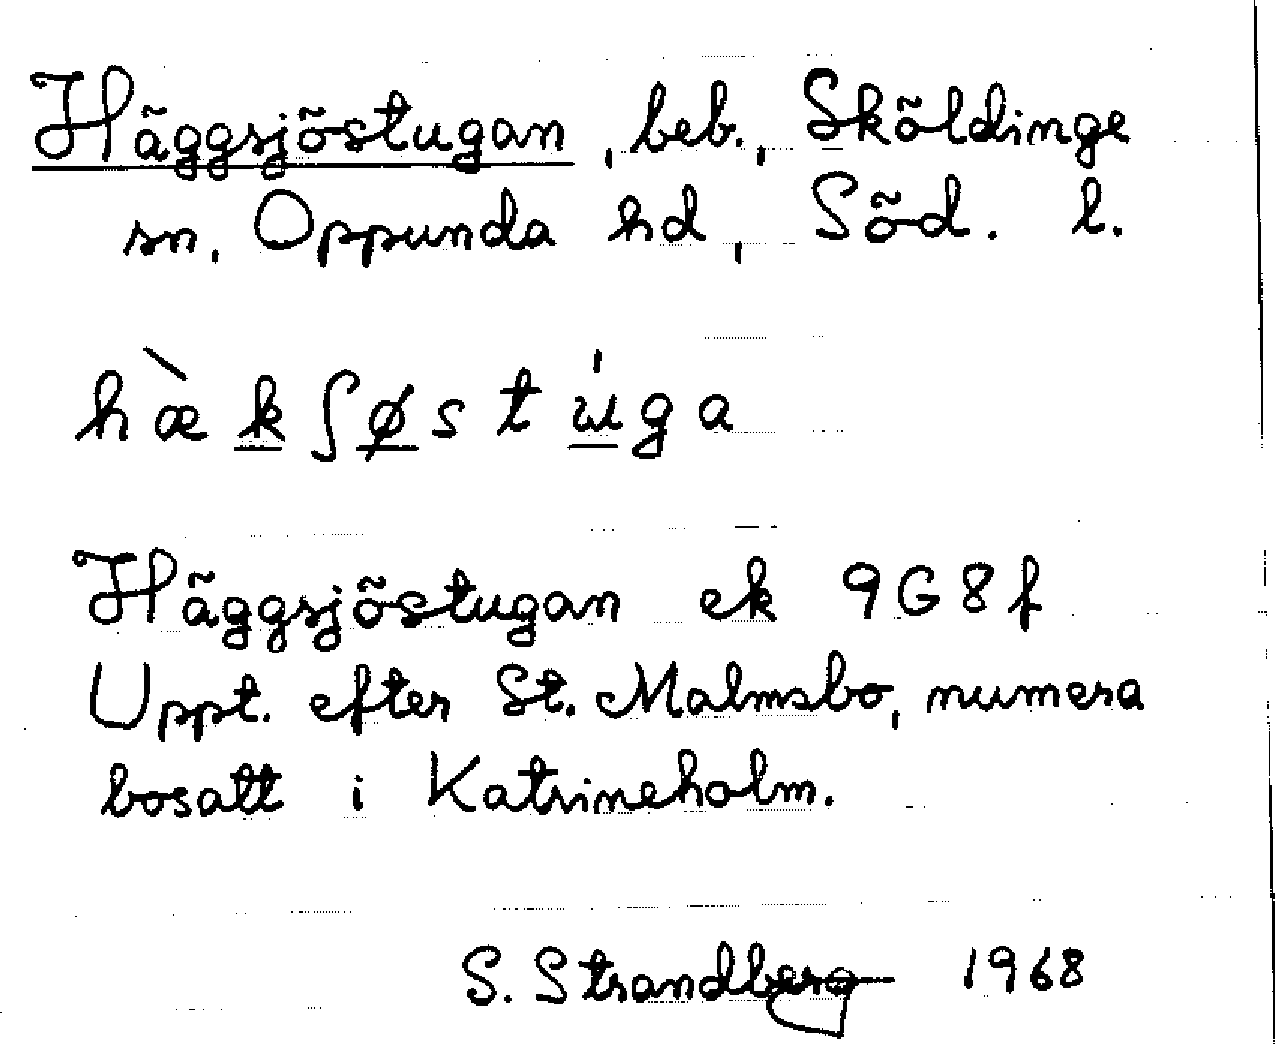 Häggsjöstugan, beb., Sköldinge
sn. Oppunda hd, Söd. l.
hæ̀kʃøstɯ́ga
Häggsjöstugan ek 9G8f
Uppt. efter St. Malmsbo, numera
bosatt i Katrineholm.
S. Strandberg 1968